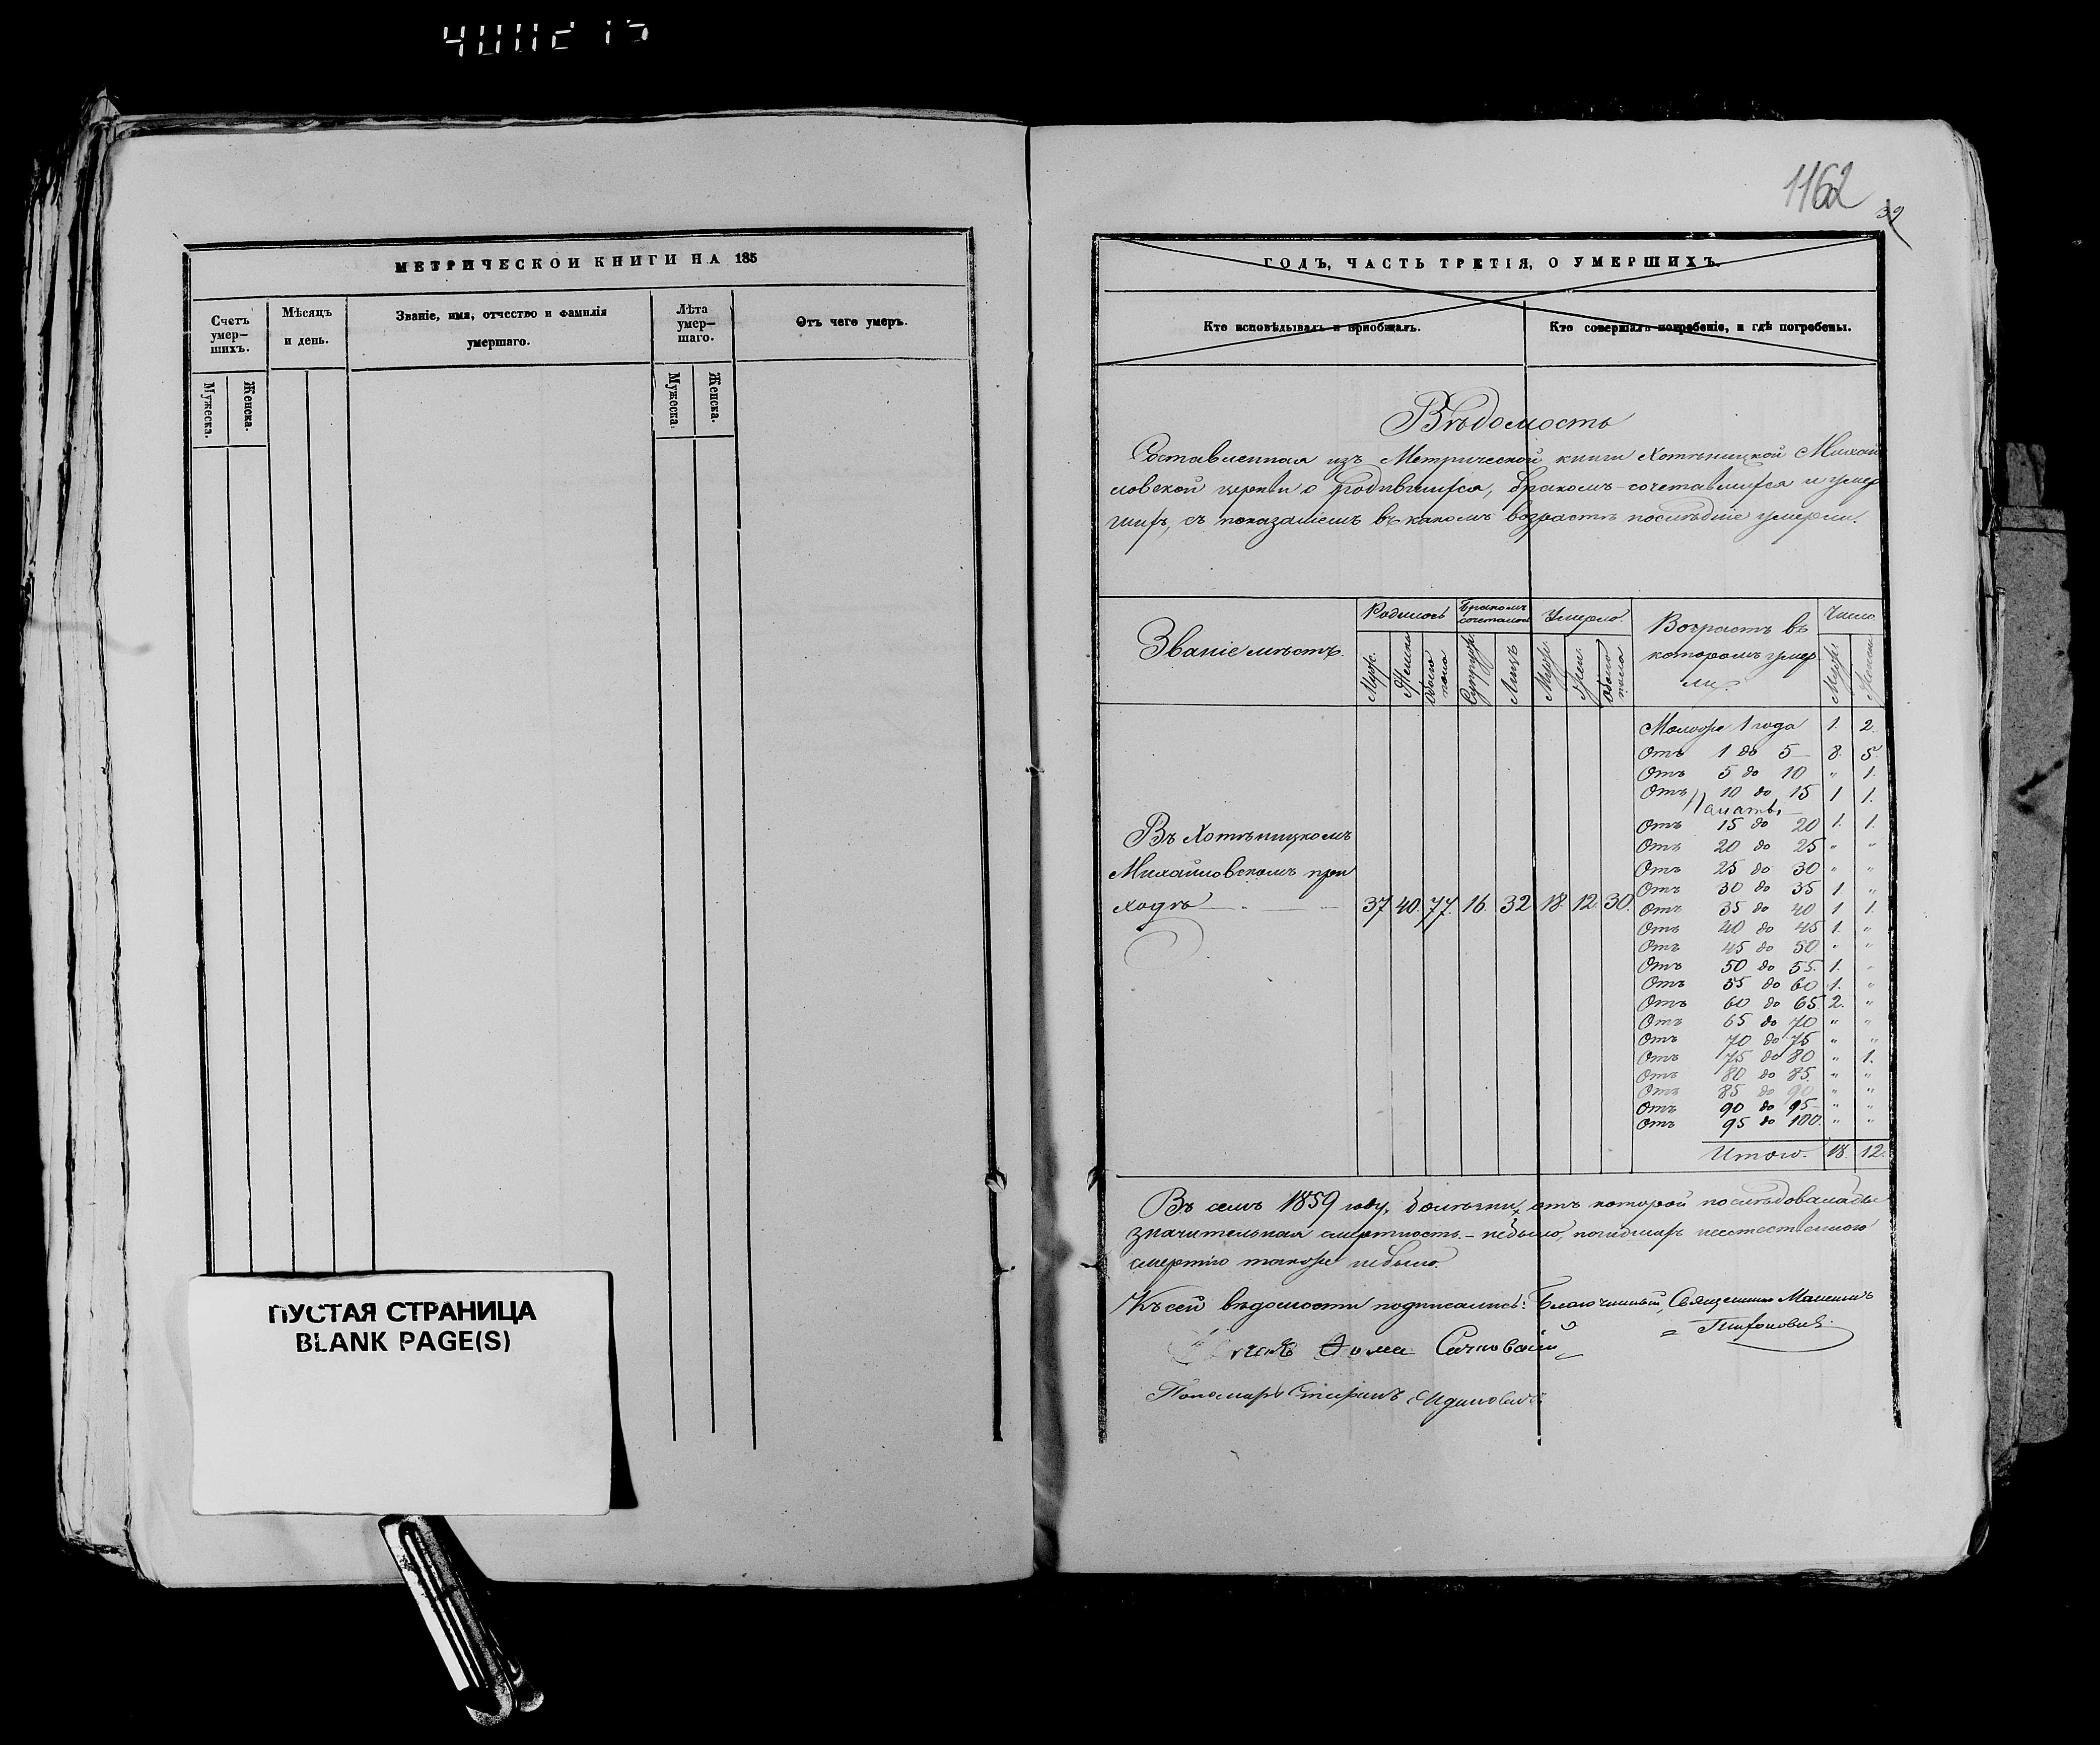 1162
39
МЕТРИЧЕСКОЙ КНИГИ НА 185
Счетъ умер-шихъ.
Мѣсяцъ и день.
Званіе, имя, отчество и фамилія умершаго.
Лѣта умер-шаго.
Отъ чего умеръ.
Мужеска.
Женска.
Мужеска.
Женска.
ПУСТАЯ СТРАНИЦА
BLANK PAGE(S)
ГОДЪ, ЧАСТЬ ТРЕТІЯ, О УМЕРШИХЪ.
Кто исповѣдывалъ и пріобщалъ.
Кто совершалъ погребеніе, и гдѣ погребены.
Вѣдомость
Составленная изъ Метрической книги Хотѣницкой Михай
ловской церкви о родившихся, бракомъ сочетавшихся и умер
шихъ, съ показаніемъ въ какомъ возрастѣ послѣдніе умерли.
Званіе мѣстъ.
Родилось
Бракомъ сочеталось
Умерло.
Возрастъ въ
которомъ умер
ли.
Число
Муж.
Женска
Обоего пола
Супруж.
Лицъ
Муж.
Жен.
Обоего пола
Муж.
Женск.
Въ Хотѣницкомъ
Михайловскомъ при
ходѣ 37 40. 77. 16. 32 18. 12 30.
Моложе 1 года 1. 2.
Отъ 1 до 5 8. 5.
Отъ 5 до 10 " 1.
Отъ 10 до 15 1 1.
Отъ 15 до 20 1. 1.
Отъ 20 до 25 " "
Отъ 25 до 30 " "
Отъ 30 до 35 1 "
Отъ 35 до 40 1 1.
Отъ 40 до 45 1. "
Отъ 45 до 50 " "
Отъ 50 до 55. 1. "
Отъ 55 до 60 1. "
Отъ 60 до 65 2. "
Отъ 65 до 70 " "
Отъ 70 до 75 " "
Отъ 75 до 80 " 1.
Отъ 80 до 85. " "
Отъ 85 до 90 " "
Отъ 90 до 95 " "
Отъ 95 до 100. " "
Итого. 18. 12.
Въ семъ 1859 году, болѣзни, отъ которой послѣдовала бы
значительная смертность - небыло, погибшихъ неестественною
смертію также небыло.
Къ сей вѣдомости подписались: Благочинный, Священникъ
Ѳома
Пономарь Стефанъ